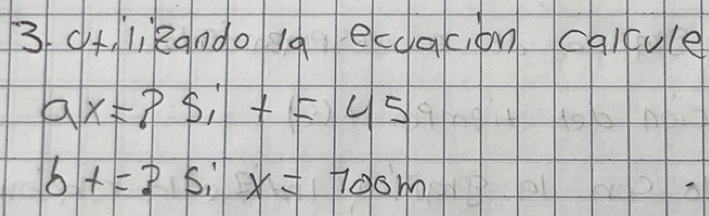 3. Utilizando la ecuación calcule
a x=? Si t = 4s
b t=? Si x= 700m